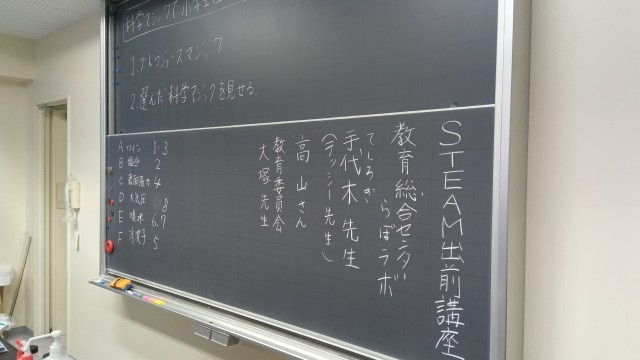 科学マジックで小学生
1.アトウジョースマジック
2.選んだ科学マジックを見せる。
STEAM出前講座
教育総合センター
らぼラボ
てしろぎ
手代木先生
(テッシー先生)
高山さん
教育委員会
大塚先生
A ワイン 1.3
B 塩分 2
C 表面張力 4
D 大気圧 8
E 噴水 6.7
F 浮沈子 5